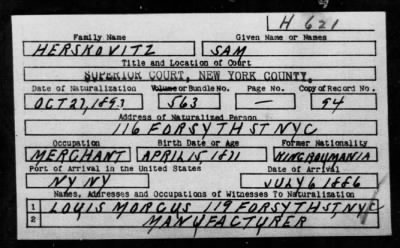 H 621
Family Name Given Name or Names
HERSKOVITZ SAM
Title and Location of Court
SUPERIOR COURT, NEW YORK COUNTY.
Date of Naturalization Volume or Bundle No. Page No. Copy of Record No.
OCT 27, 1893 563 — 94
Address of Naturalized Person
116 FORSYTH ST NYC
Occupation Birth Date or Age Former Nationality
MERCHANT APRIL 15, 1871 KING ROUMANIA
Port of Arrival in the United States Date of Arrival
NY NY JULY 6 1886
Names, Addresses and Occupations of Witnesses To Naturalization
1 LOUIS MORGUS 119 FORSYTH ST NYC
2 MANUFACTURER